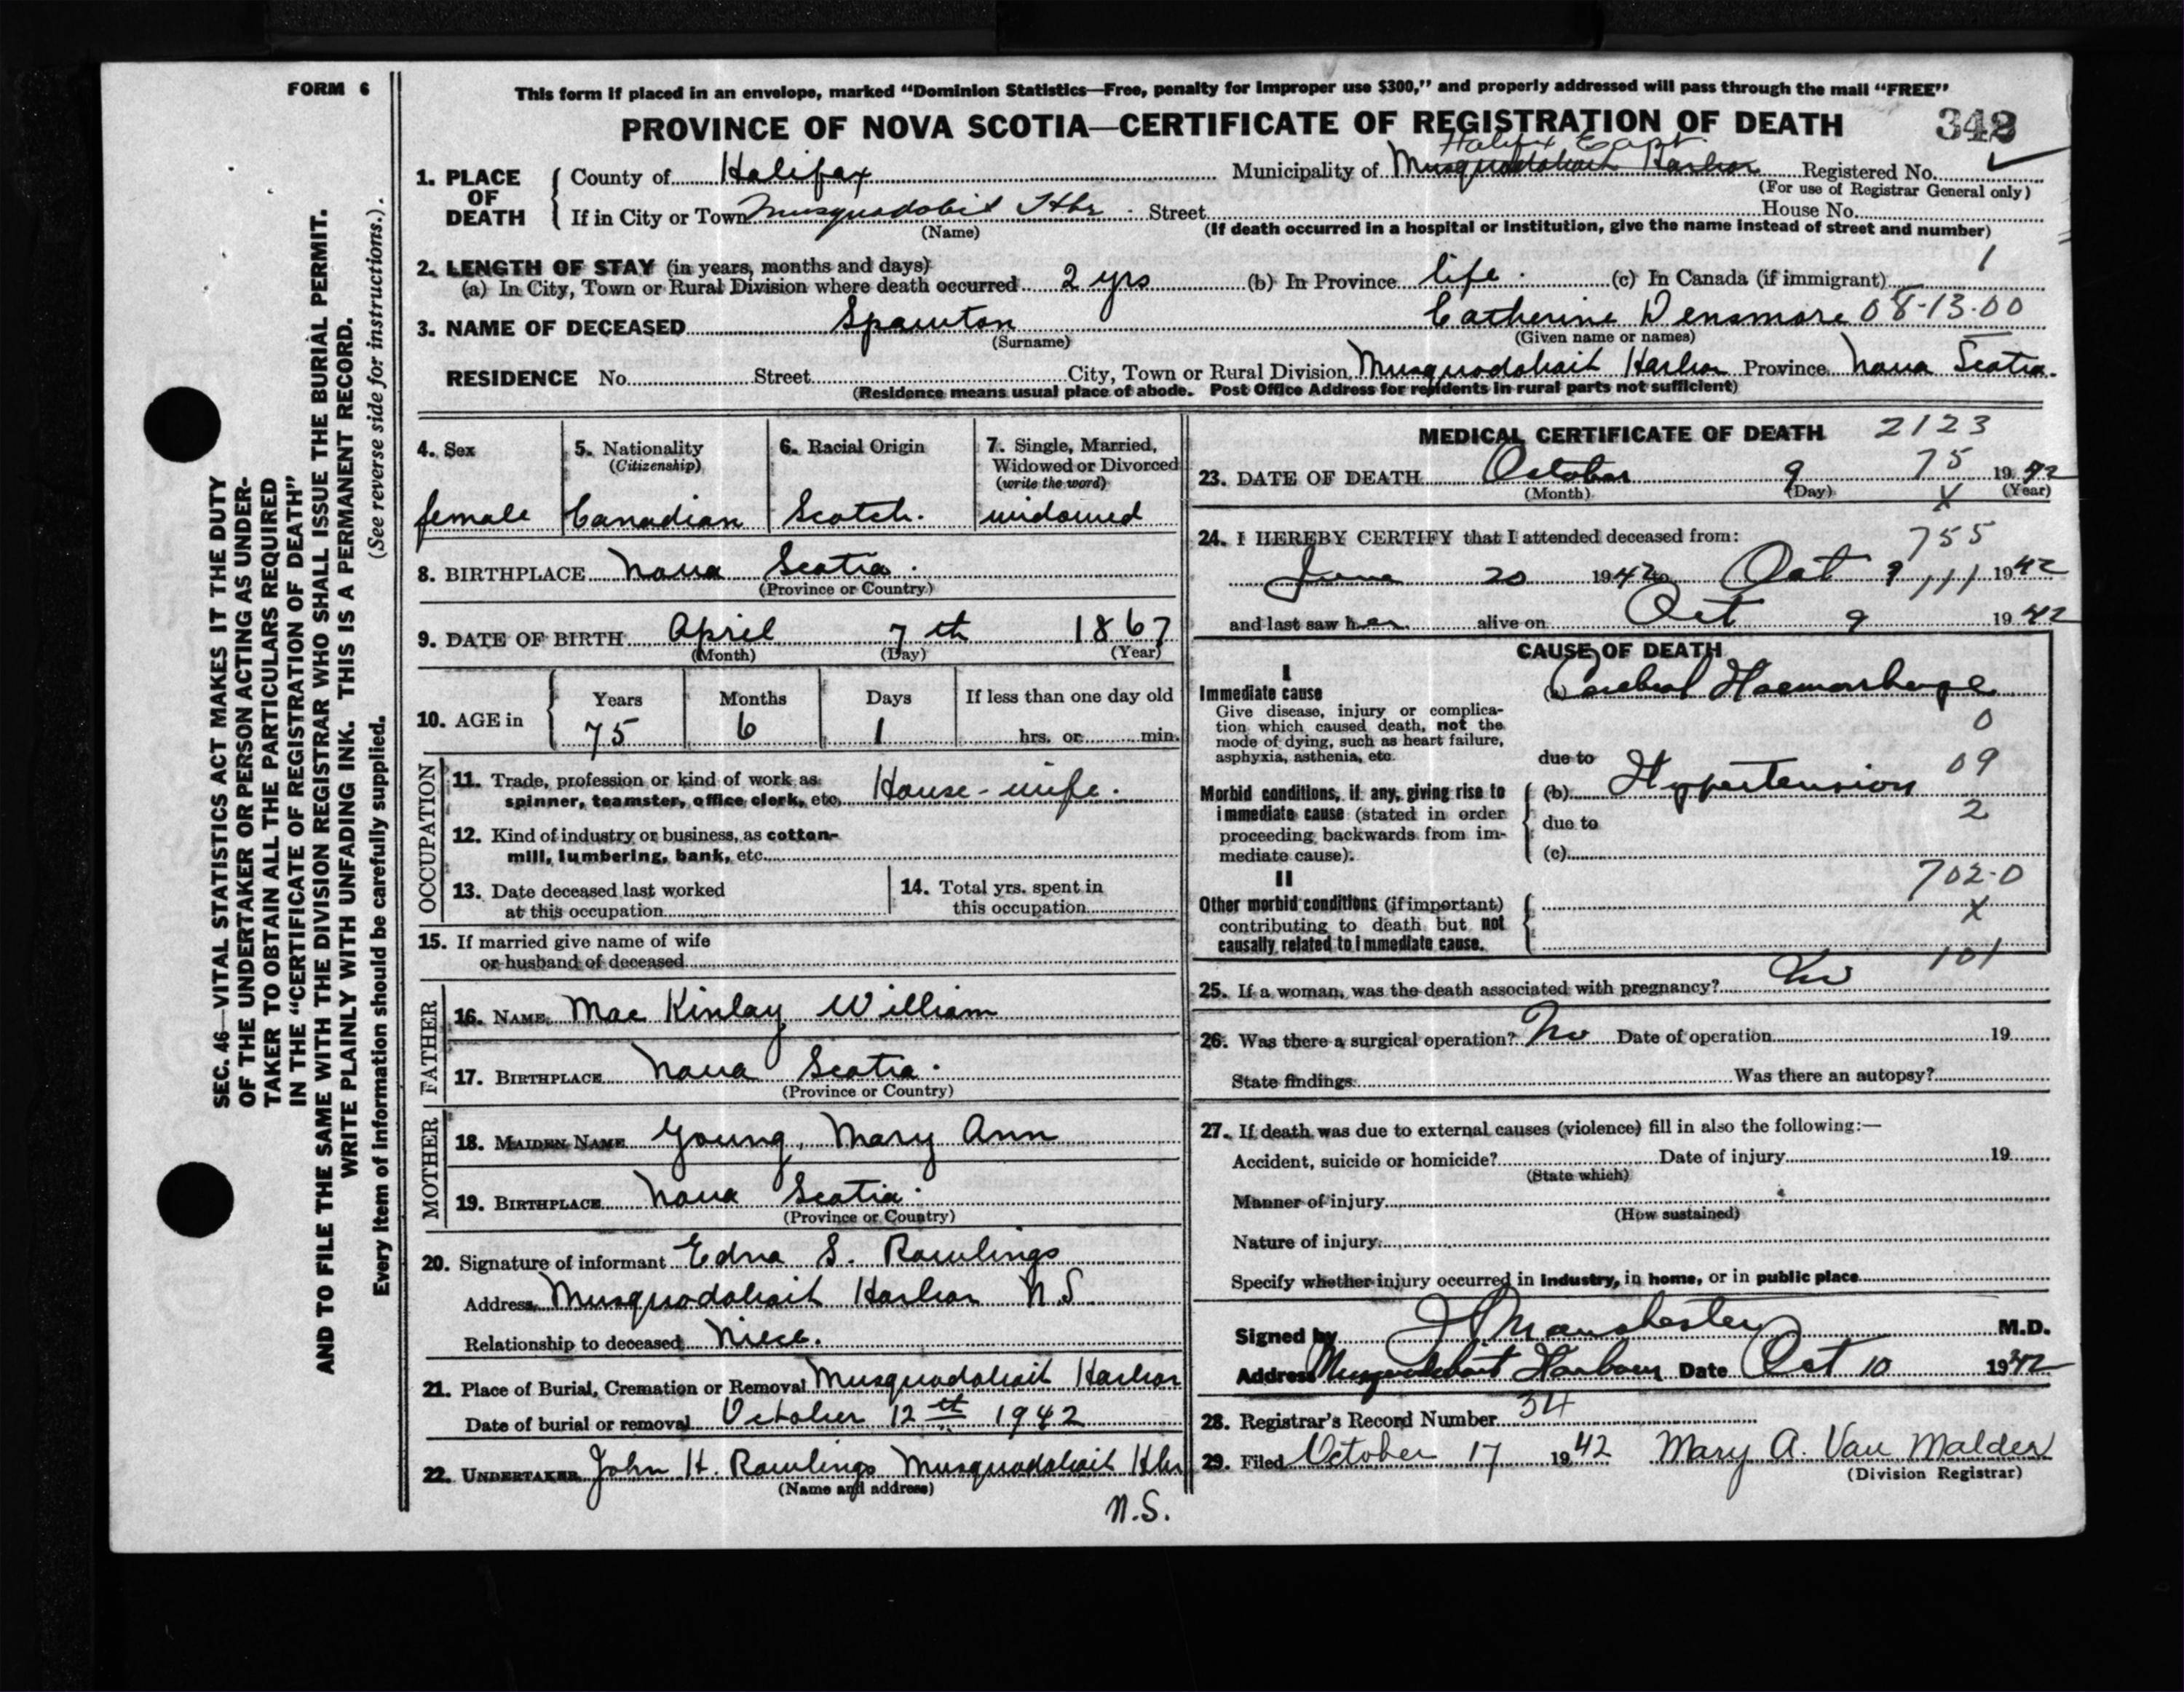 FORM 6
This form if placed in an envelope, marked "Dominion Statistics—Free, penalty for improper use $300," and properly addressed will pass through the mail "FREE"
PROVINCE OF NOVA SCOTIA—CERTIFICATE OF REGISTRATION OF DEATH 348
Halifax East
1. PLACE OF DEATH County of Halifax Municipality of Musquodoboit Harbor Registered No. ✓
(For use of Registrar General only)
If in City or Town Musquodobit Hbr. Street House No.
(Name) (If death occurred in a hospital or institution, give the name instead of street and number)
2. LENGTH OF STAY (in years, months and days) 1
(a) In City, Town or Rural Division where death occurred 2 yrs (b) In Province life. (c) In Canada (if immigrant)
3. NAME OF DECEASED Spawton Catherine Densmore 08-13-00
(Surname) (Given name or names)
RESIDENCE No. Street City, Town or Rural Division Musquodoboit Harbor Province Nova Scotia.
(Residence means usual place of abode. Post Office Address for residents in rural parts not sufficient)
4. Sex 5. Nationality 6. Racial Origin 7. Single, Married,
(Citizenship) Widowed or Divorced
(write the word)
female Canadian Scotch. widowed
8. BIRTHPLACE Nova Scotia.
(Province or Country)
9. DATE OF BIRTH April 7th 1867
(Month) (Day) (Year)
Years Months Days If less than one day old
10. AGE in 75 6 1 hrs. or min.
OCCUPATION
11. Trade, profession or kind of work as
spinner, teamster, office clerk, etc. House-wife.
12. Kind of industry or business, as cotton-
mill, lumbering, bank, etc.
13. Date deceased last worked 14. Total yrs. spent in
at this occupation this occupation
15. If married give name of wife
or husband of deceased
FATHER
16. NAME Mac Kinlay William
17. BIRTHPLACE Nova Scotia.
(Province or Country)
MOTHER
18. MAIDEN NAME Young, Mary Ann
19. BIRTHPLACE Nova Scotia.
(Province or Country)
20. Signature of informant Edna S. Rawlings
Address Musquodoboit Harbor N.S
Relationship to deceased Niece.
21. Place of Burial, Cremation or Removal Musquodoboit Harbor
Date of burial or removal October 12th 1942
22. UNDERTAKER John H. Rawlings Musquodoboit Hbr
(Name and address)
N.S.
MEDICAL CERTIFICATE OF DEATH 2123
75
23. DATE OF DEATH October 9 1942
(Month) (Day) (Year)
X
24. I HEREBY CERTIFY that I attended deceased from: 755
June 20 1942 to Oct 9 1942
111
and last saw her alive on Oct 9 1942
CAUSE OF DEATH
I
Immediate cause (a) Cerebral Haemorrhage
Give disease, injury or complica-
tion which caused death, not the 0
mode of dying, such as heart failure,
asphyxia, asthenia, etc. due to 09
Morbid conditions, if any, giving rise to (b) Hypertension
immediate cause (stated in order 2
proceeding backwards from im- due to
mediate cause). (c)
II 702-0
Other morbid conditions (if important) X
contributing to death but not
causally related to immediate cause.
101
25. If a woman, was the death associated with pregnancy? No
26. Was there a surgical operation? No Date of operation 19
State findings Was there an autopsy?
27. If death was due to external causes (violence) fill in also the following:—
Accident, suicide or homicide? Date of injury 19
(State which)
Manner of injury
(How sustained)
Nature of injury
Specify whether injury occurred in industry, in home, or in public place
Signed by Manchester M.D.
Address Musquodoboit Harbour Date Oct 10 1942
28. Registrar's Record Number 34
29. Filed October 17 1942 Mary A. Van Malder
(Division Registrar)
SEC. 46—VITAL STATISTICS ACT MAKES IT THE DUTY
OF THE UNDERTAKER OR PERSON ACTING AS UNDER-
TAKER TO OBTAIN ALL THE PARTICULARS REQUIRED
IN THE "CERTIFICATE OF REGISTRATION OF DEATH"
AND TO FILE THE SAME WITH THE DIVISION REGISTRAR WHO SHALL ISSUE THE BURIAL PERMIT.
WRITE PLAINLY WITH UNFADING INK. THIS IS A PERMANENT RECORD.
Every item of information should be carefully supplied. (See reverse side for instructions.)